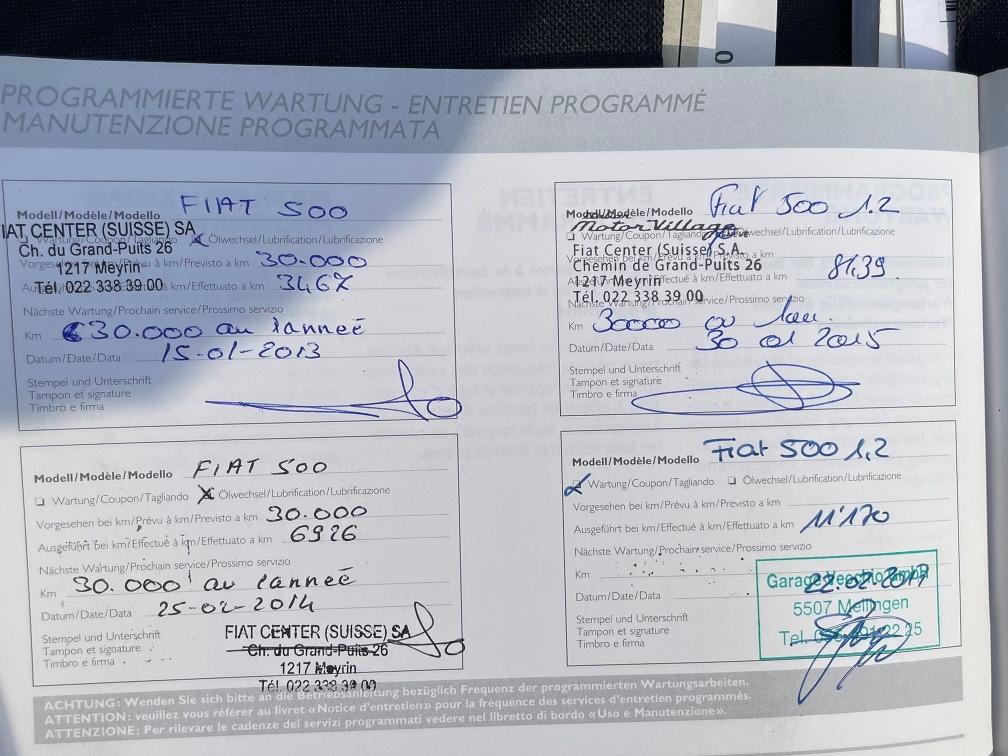 PROGRAMMIERTE WARTUNG - ENTRETIEN PROGRAMMÉ
MANUTENZIONE PROGRAMMATA
Modell/Modèle/Modello FIAT 500
FIAT CENTER (SUISSE) SA
Wartung/Coupon/Tagliando X Ölwechsel/Lubrification/Lubrificazione
Ch. du Grand-Puits 26
Vorgesehen bei km/Prévu à km/Previsto a km 30.000
1217 Meyrin
Ausgeführt bei km/Effectué à km/Effettuato a km 3467
Tél. 022 338 39 00
Nächste Wartung/Prochain service/Prossimo servizio
Km 30.000 au lanneé
Datum/Date/Data 15-01-2013
Stempel und Unterschrift
Tampon et signature
Timbro e firma
Modell/Modèle/Modello Fiat 500 1.2
Motor Village
Wartung/Coupon/Tagliando Ölwechsel/Lubrification/Lubrificazione
Fiat Center (Suisse) S.A.
Vorgesehen bei km/Prévu à km/Previsto a km
Chemin de Grand-Puits 26
8139.
1217 Meyrin
Tél. 022 338 39 00
Nächste Wartung/Prochain service/Prossimo servizio
Km 30000 ou 1an.
Datum/Date/Data 30 01 2015
Stempel und Unterschrift
Tampon et signature
Timbro e firma
Modell/Modèle/Modello FIAT 500
Wartung/Coupon/Tagliando X Ölwechsel/Lubrification/Lubrificazione
Vorgesehen bei km/Prévu à km/Previsto a km 30.000
Ausgeführt bei km/Effectué à km/Effettuato a km 6926
Nächste Wartung/Prochain service/Prossimo servizio
Km 30.000 au lanneé
Datum/Date/Data 25-02-2014
Stempel und Unterschrift
Tampon et signature
Timbro e firma
FIAT CENTER (SUISSE) SA
Ch. du Grand-Puits 26
1217 Meyrin
Tél. 022 338 39 00
Modell/Modèle/Modello Fiat 500 1,2
Wartung/Coupon/Tagliando Ölwechsel/Lubrification/Lubrificazione
Vorgesehen bei km/Prévu à km/Previsto a km
Ausgeführt bei km/Effectué à km/Effettuato a km 11'170
Nächste Wartung/Prochain service/Prossimo servizio
Km
Garage Vecchio GmbH
Datum/Date/Data 22.02.2017
5507 Mellingen
Stempel und Unterschrift
Tampon et signature
Tel. 22 25
Timbro e firma
ACHTUNG: Wenden Sie sich bitte an die Betriebsanleitung bezüglich Frequenz der programmierten Wartungsarbeiten.
ATTENTION: veuillez vous référer au livret «Notice d'entretien» pour la fréquence des services d'entretien programmés.
ATTENZIONE: Per rilevare le cadenze dei servizi programmati vedere nel libretto di bordo «Uso e Manutenzione».